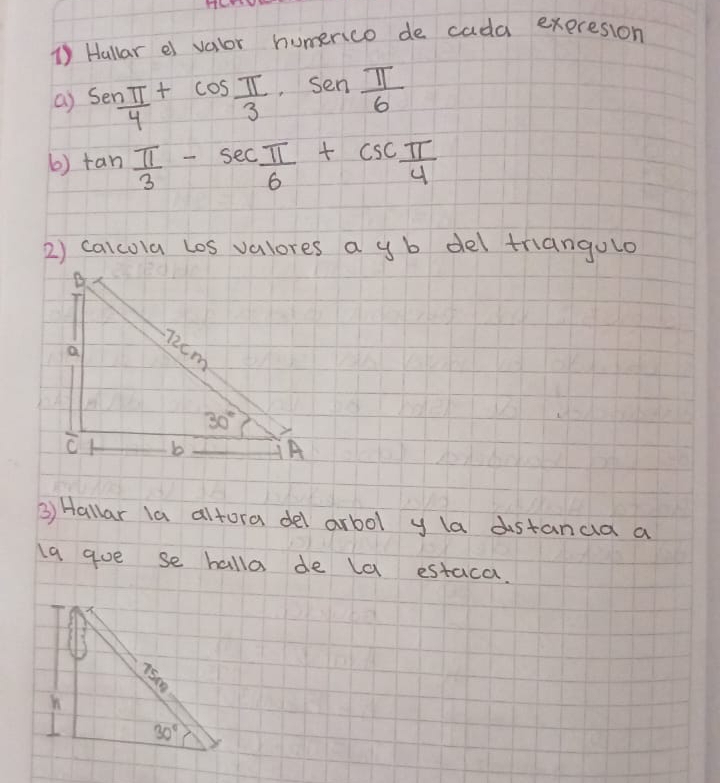 1) Hallar el valor numerico de cada expresion
a) Sen π/4 + cos π/3 . sen π/6
b) tan π/3 - sec π/6 + csc π/4
2) calcula los valores a y b del triangulo
B
72cm
a
30°
C b A
3) Hallar la altura del arbol y la distancia a
la que se halla de la estaca.
75m
h
30°